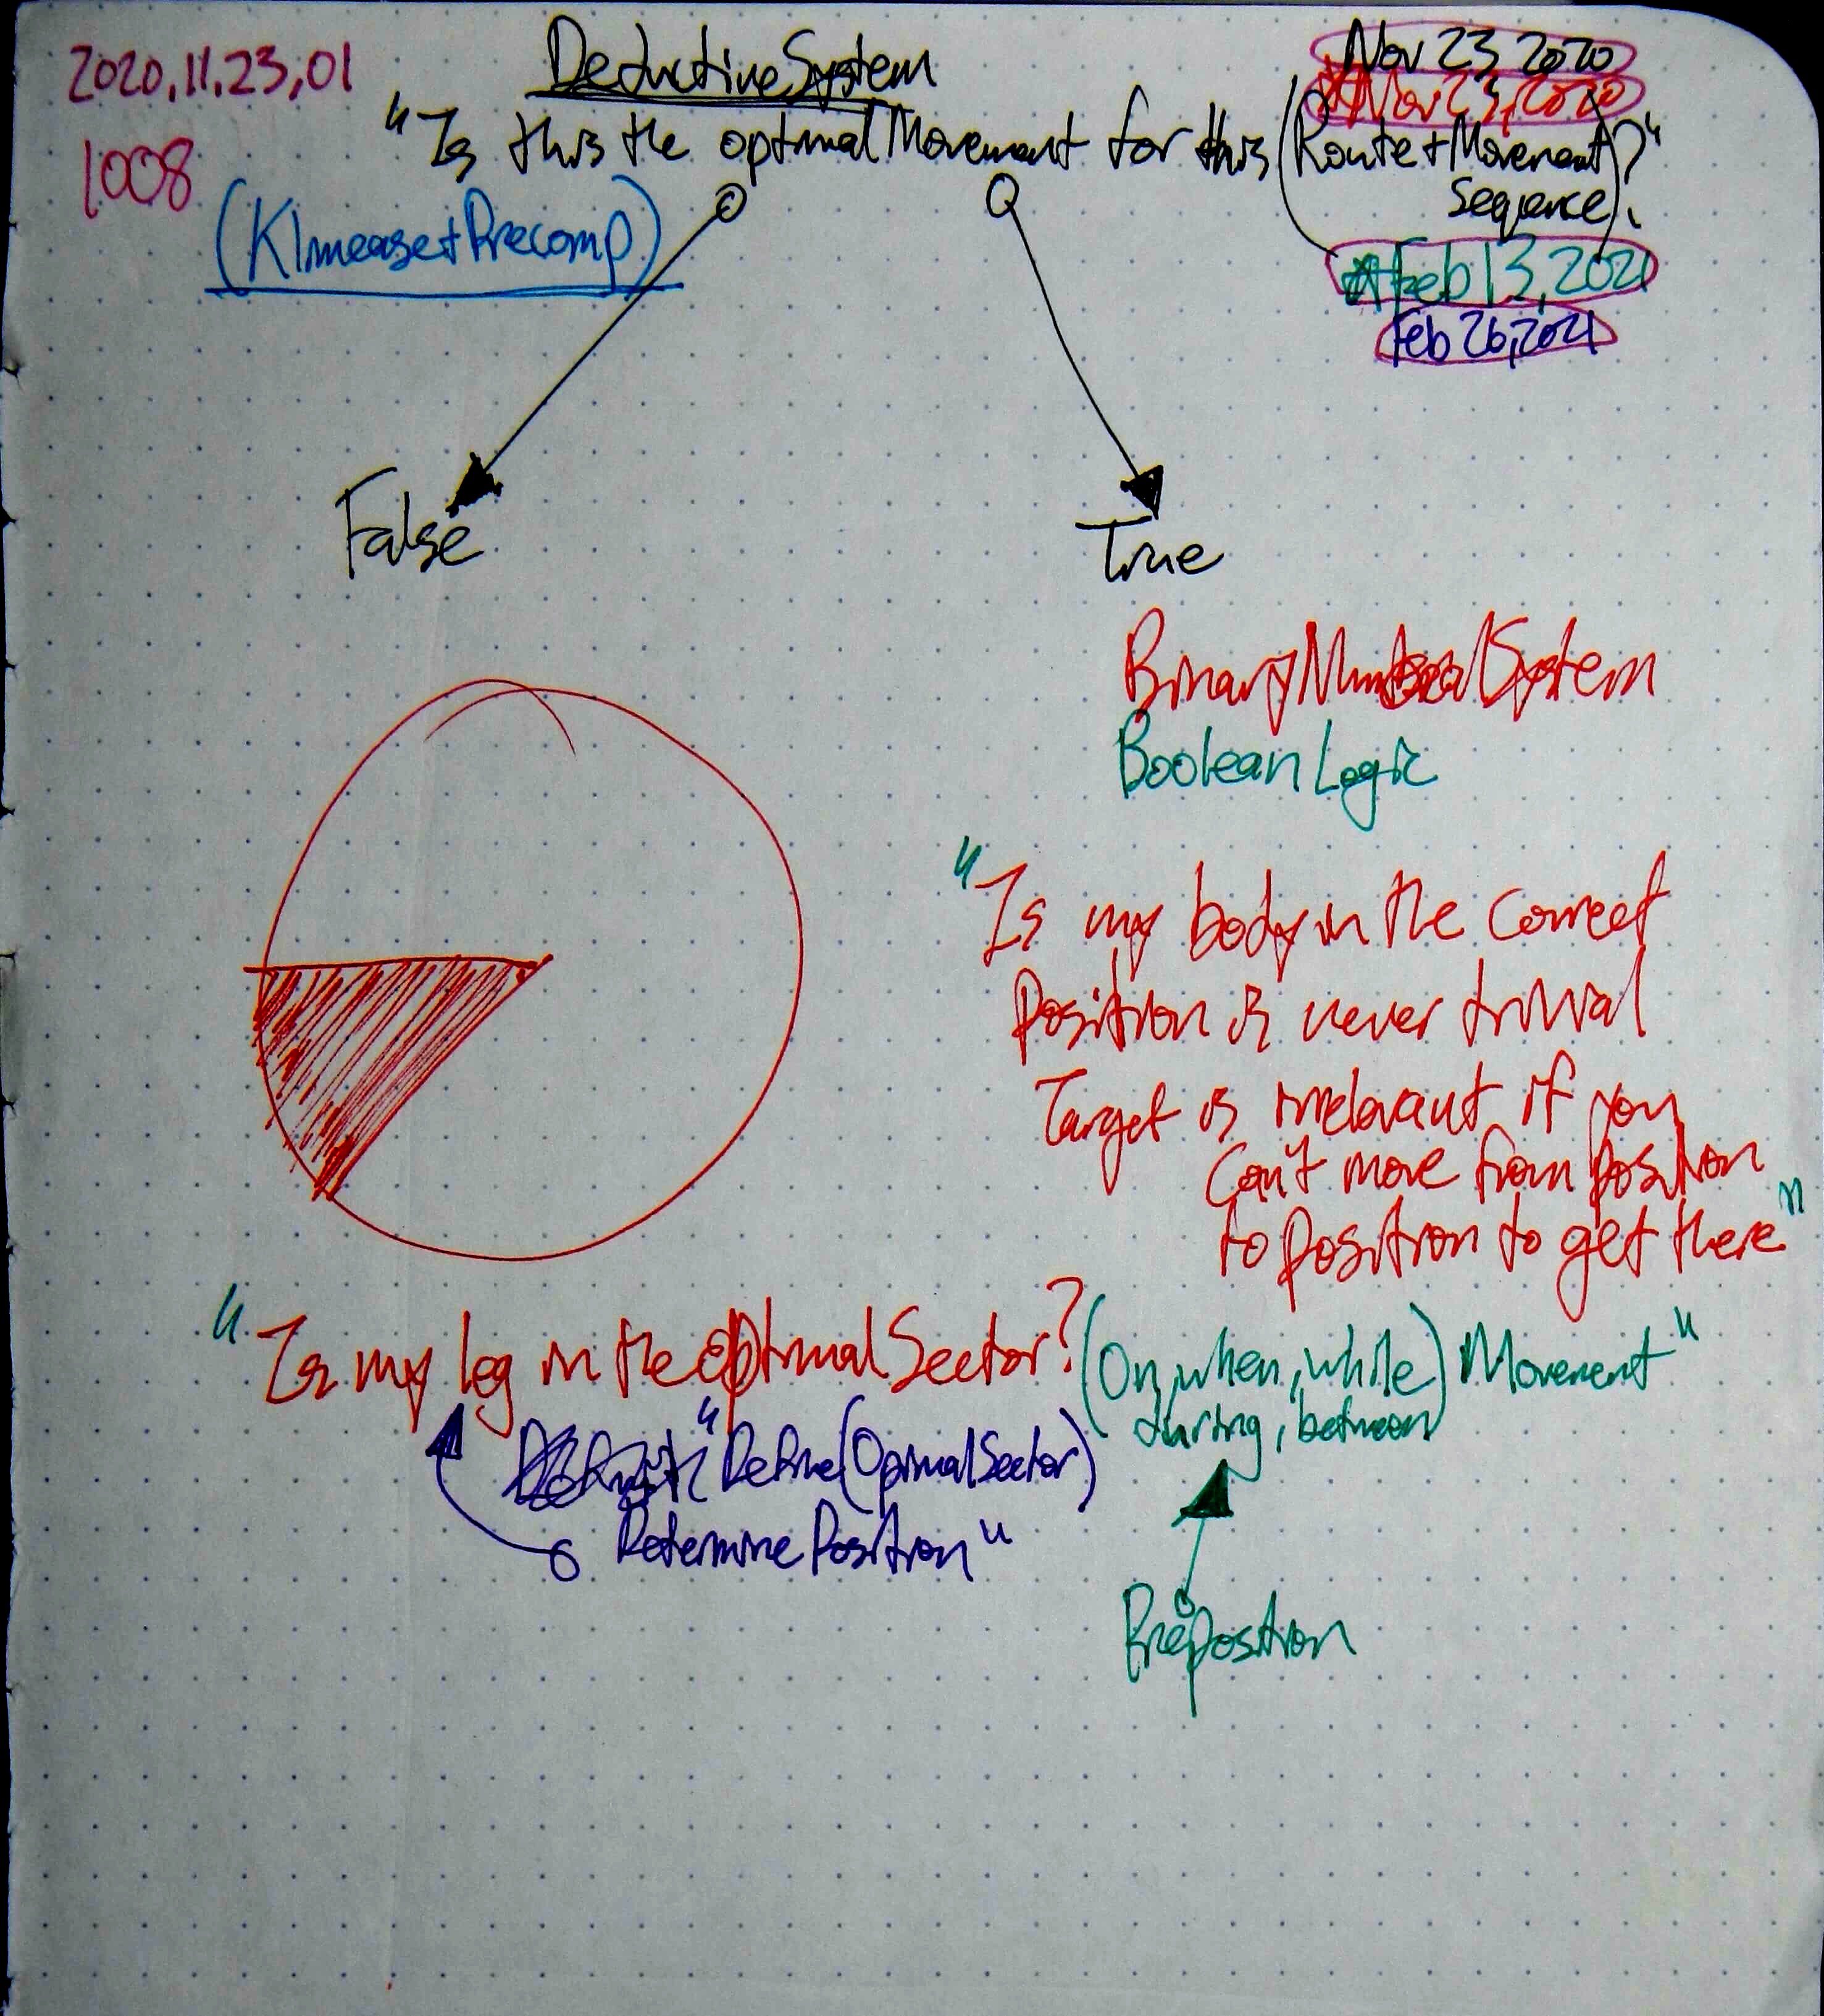 2020.11.23,01
DeductiveSystem
Nov 23 2020
Nov 23, 2020
1008
"Is this the optimalMovement for this (Route+Movement)?"
Sequence
Feb 13, 2021
Feb 26, 2021
False
True
Boolean Logic
"Is my body in the correct
Position is never trivial
Target is irrelevant if you
Can't move from position
to position to get there"
"Is my leg in the optimalSector? (On, when, while) Movement"
during, between
"Define(OptimalSector)
Determine Position"
Preposition